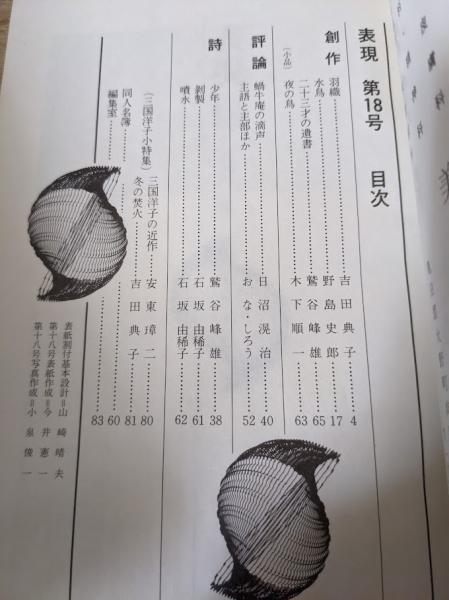 表現 第18号 目次
創作
羽織 吉田典子 4
水鳥 野島史郎 17
二十三才の遺書 鷲谷峰雄 65
(小品) 夜の鳥 木下順一 63
評論
蝸牛庵の滴声 日沼滉治 40
主語と主部ほか おな・しろう 52
詩
少年 鷲谷峰雄 38
剥製 石坂由稀子 61
噴水 石坂由稀子 62
(三国洋子小特集) 三国洋子の近作 安東璋二 80
冬の焚火 吉田典子 81
同人名簿 60
編集室 83
表紙割付基本設計=山崎靖夫
第十八号表紙作成=今井憲一
第十八号写真作成=小泉俊一